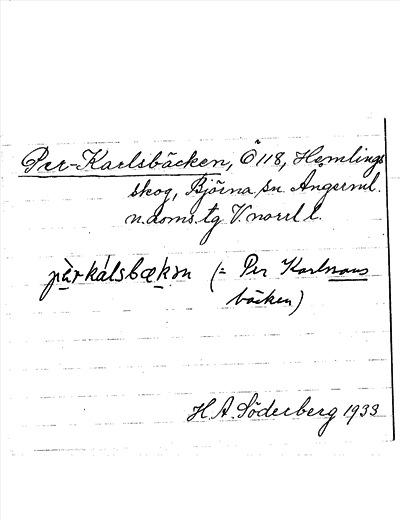 Per-Karlsbäcken, Ö 118, Hemlings
skog, Björna sn. Ångerml.
n. doms. tg V. norrl l.
pàrkálsbækən (= Per Karlsnaus
bäcken)
H A. Söderberg 1933